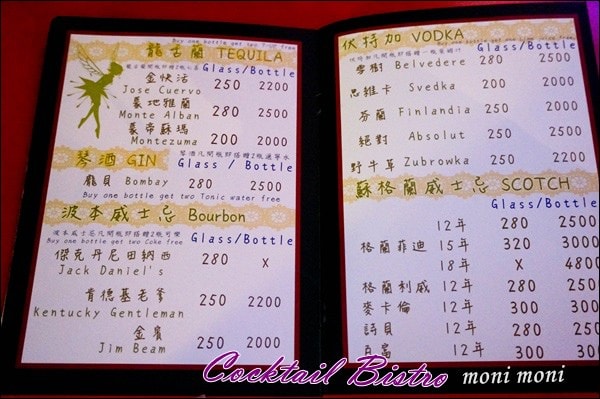 Buy one bottle get two Tube free
龍舌蘭 TEQUILA
Glass/Bottle
金快活 250 2200
Jose Cuervo
蒙地雅蘭 280 2500
Monte Alban
蒙帝蘇瑪 200 2000
Montezuma
琴酒 GIN
Glass / Bottle
龐貝 Bombay 280 2500
Buy one bottle get two Tonic water free
波本威士忌 Bourbon
波本威士忌凡開瓶即搭贈2瓶可樂
Buy one bottle get two Coke free
Glass/Bottle
傑克丹尼田納西 280 X
Jack Daniel's
肯德基老爹 250 2200
Kentucky Gentleman
金賓 250 2000
Jim Beam
伏特加 VODKA
Glass/Bottle
雪樹 Belvedere 280 2500
思維卡 Svedka 200 2000
芬蘭 Finlandia 250 2500
絕對 Absolut 250 2500
野牛草 Zubrowka 250 2200
蘇格蘭威士忌 SCOTCH
Glass/Bottle
12年 280 2500
格蘭菲迪 15年 320 3000
18年 X 4800
格蘭利威 12年 280 250
麥卡倫 12年 300 300
詩貝 12年 280 250
百富 12年 300 300
Cocktail Bistro moni moni